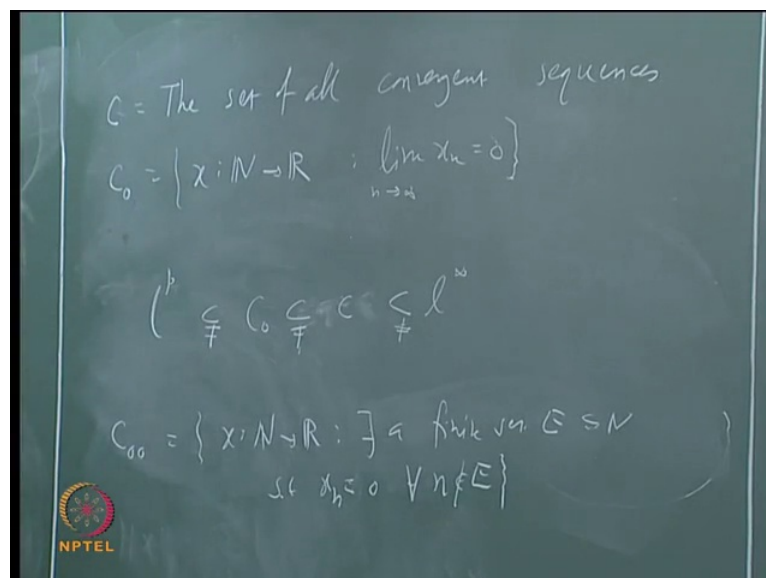 C = The set of all convergent sequences
C₀ = { x : ℕ → ℝ : lim xₙ = 0 }
n → ∞
lᵖ ⊊ C₀ ⊊ C ⊊ l^∞
C₀₀ = { x : ℕ → ℝ : ∃ a finite set E ⊆ N }
s.t xₙ = 0 ∀ n ∉ E }
NPTEL